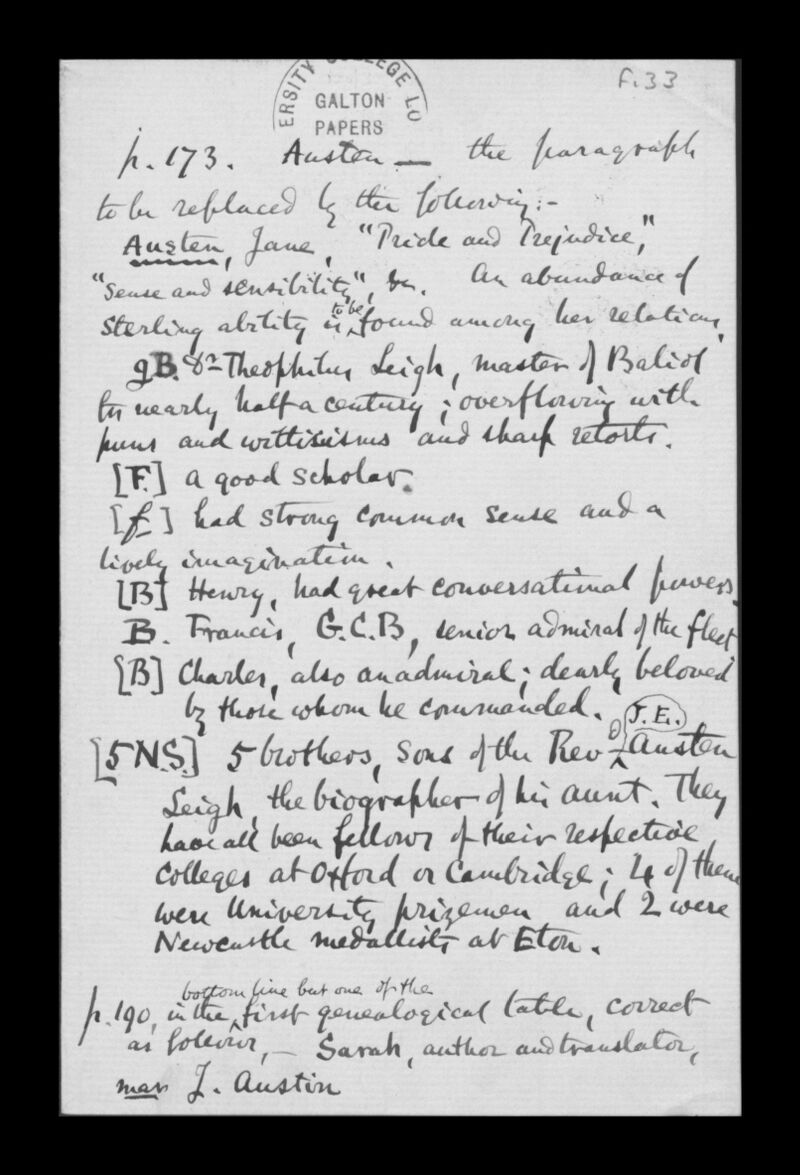 ERSITY COLLEGE LO
GALTON
PAPERS
f.33
p. 173. Austen — the paragraph
to be replaced by the following:-
Austen, Jane, "Pride and Prejudice,"
"Sense and sensibility", &c. An abundance of
sterling ability is to be found among her relations.
gB. Dr Theophilus Leigh, master of Baliol
for nearly half a century; overflowing with
puns and wittisisms and sharp retorts.
[F.] a good scholar.
[f] had strong common sense and a
lively imagination.
[B] Henry, had great conversational powers.
B. Francis, G.C.B, senior admiral of the fleet
[B] Charles, also an admiral; dearly beloved
by those whom he commanded.
[5 N.S.] 5 brothers, sons of the Revd J.E. Austen
Leigh, the biographer of his aunt. They
have all been fellows of their respective
Colleges at Oxford or Cambridge; 4 of them
were University prizemen and 2 were
Newcastle medallists at Eton.
p. 190, in the bottom line but one of the first genealogical table, correct
as follows, — Sarah, author and translator,
mar J. Austin